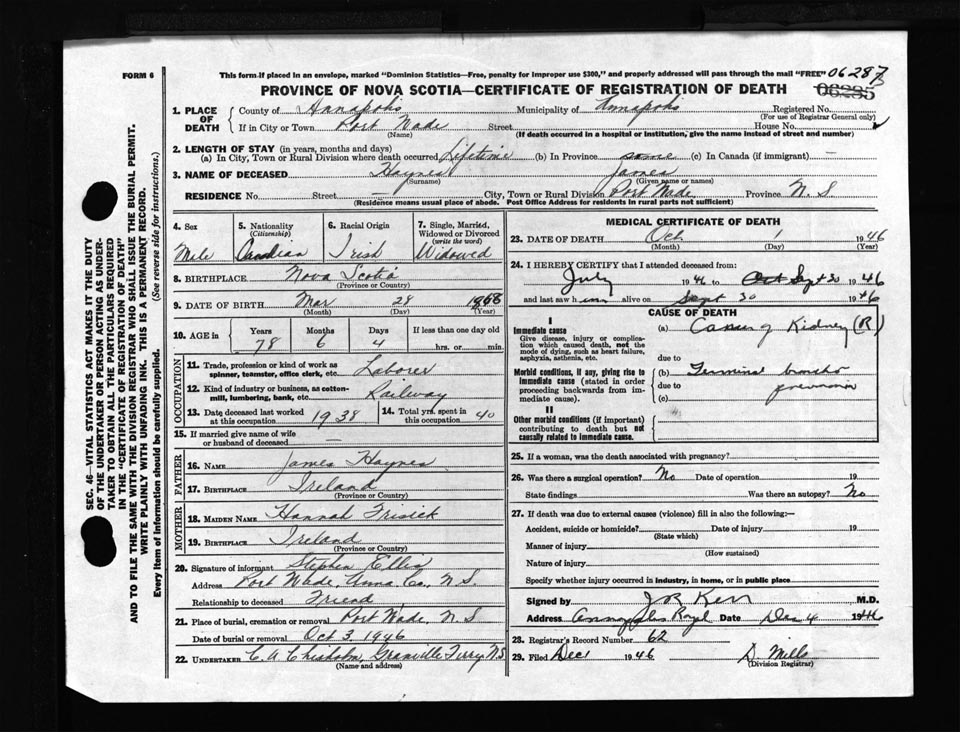 FORM 6
This form if placed in an envelope, marked "Dominion Statistics—Free, penalty for improper use $300," and properly addressed will pass through the mail "FREE" 06287
PROVINCE OF NOVA SCOTIA—CERTIFICATE OF REGISTRATION OF DEATH 06285
1. PLACE OF DEATH County of Annapolis Municipality of Annapolis Registered No.
(For use of Registrar General only)
If in City or Town Port Wade Street House No.
(Name) (If death occurred in a hospital or institution, give the name instead of street and number)
2. LENGTH OF STAY (in years, months and days)
(a) In City, Town or Rural Division where death occurred Lifetime (b) In Province same (c) In Canada (if immigrant) —
3. NAME OF DECEASED Haynes James
(Surname) (Given name or names)
RESIDENCE No. Street City, Town or Rural Division Port Wade Province N. S.
(Residence means usual place of abode. Post Office Address for residents in rural parts not sufficient)
4. Sex 5. Nationality (Citizenship) 6. Racial Origin 7. Single, Married, Widowed or Divorced (write the word)
Male Canadian Irish Widowed
8. BIRTHPLACE Nova Scotia
(Province or Country)
9. DATE OF BIRTH Mar 28 1868
(Month) (Day) (Year)
10. AGE in Years Months Days If less than one day old
78 6 4 hrs. or min.
OCCUPATION
11. Trade, profession or kind of work as spinner, teamster, office clerk, etc. Laborer
12. Kind of industry or business, as cotton-mill, lumbering, bank, etc. Railway
13. Date deceased last worked at this occupation 1938 14. Total yrs. spent in this occupation 40
15. If married give name of wife or husband of deceased —
FATHER
16. NAME James Haynes
17. BIRTHPLACE Ireland
(Province or Country)
MOTHER
18. MAIDEN NAME Hannah
19. BIRTHPLACE Ireland
(Province or Country)
20. Signature of informant Stephen Ellis
Address Port Wade, Anna. Co., N. S.
Relationship to deceased Friend
21. Place of burial, cremation or removal Port Wade, N. S
Date of burial or removal Oct 3, 1946
22. UNDERTAKER C. A. Chisholm, Granville Ferry, N.S.
(Name and address)
MEDICAL CERTIFICATE OF DEATH
23. DATE OF DEATH Oct 1 1946
(Month) (Day) (Year)
24. I HEREBY CERTIFY that I attended deceased from:
July 1946 to Oct Sept 30 1946
and last saw him alive on Sept 30 1946
CAUSE OF DEATH
I
Immediate cause (a) Kidney (R)
Give disease, injury or complication which caused death, not the mode of dying, such as heart failure, asphyxia, asthenia, etc.
due to
Morbid conditions, if any, giving rise to immediate cause (stated in order proceeding backwards from immediate cause). (b) Terminal broncho
due to pneumonia
(c)
II
Other morbid conditions (if important) contributing to death but not causally related to immediate cause.
25. If a woman, was the death associated with pregnancy?
26. Was there a surgical operation? No Date of operation 19
State findings Was there an autopsy? No
27. If death was due to external causes (violence) fill in also the following:—
Accident, suicide or homicide? Date of injury 19
(State which)
Manner of injury
(How sustained)
Nature of injury
Specify whether injury occurred in industry, in home, or in public place
Signed by J B Kerr M.D.
Address Annapolis Royal Date Dec 4 1946
28. Registrar's Record Number 62
29. Filed Dec 1946 D. Mills
(Division Registrar)
SEC. 46—VITAL STATISTICS ACT MAKES IT THE DUTY
OF THE UNDERTAKER OR PERSON ACTING AS UNDER-
TAKER TO OBTAIN ALL THE PARTICULARS REQUIRED
IN THE "CERTIFICATE OF REGISTRATION OF DEATH"
AND TO FILE THE SAME WITH THE DIVISION REGISTRAR WHO SHALL ISSUE THE BURIAL PERMIT.
WRITE PLAINLY WITH UNFADING INK. THIS IS A PERMANENT RECORD.
Every item of information should be carefully supplied. (See reverse side for instructions.)